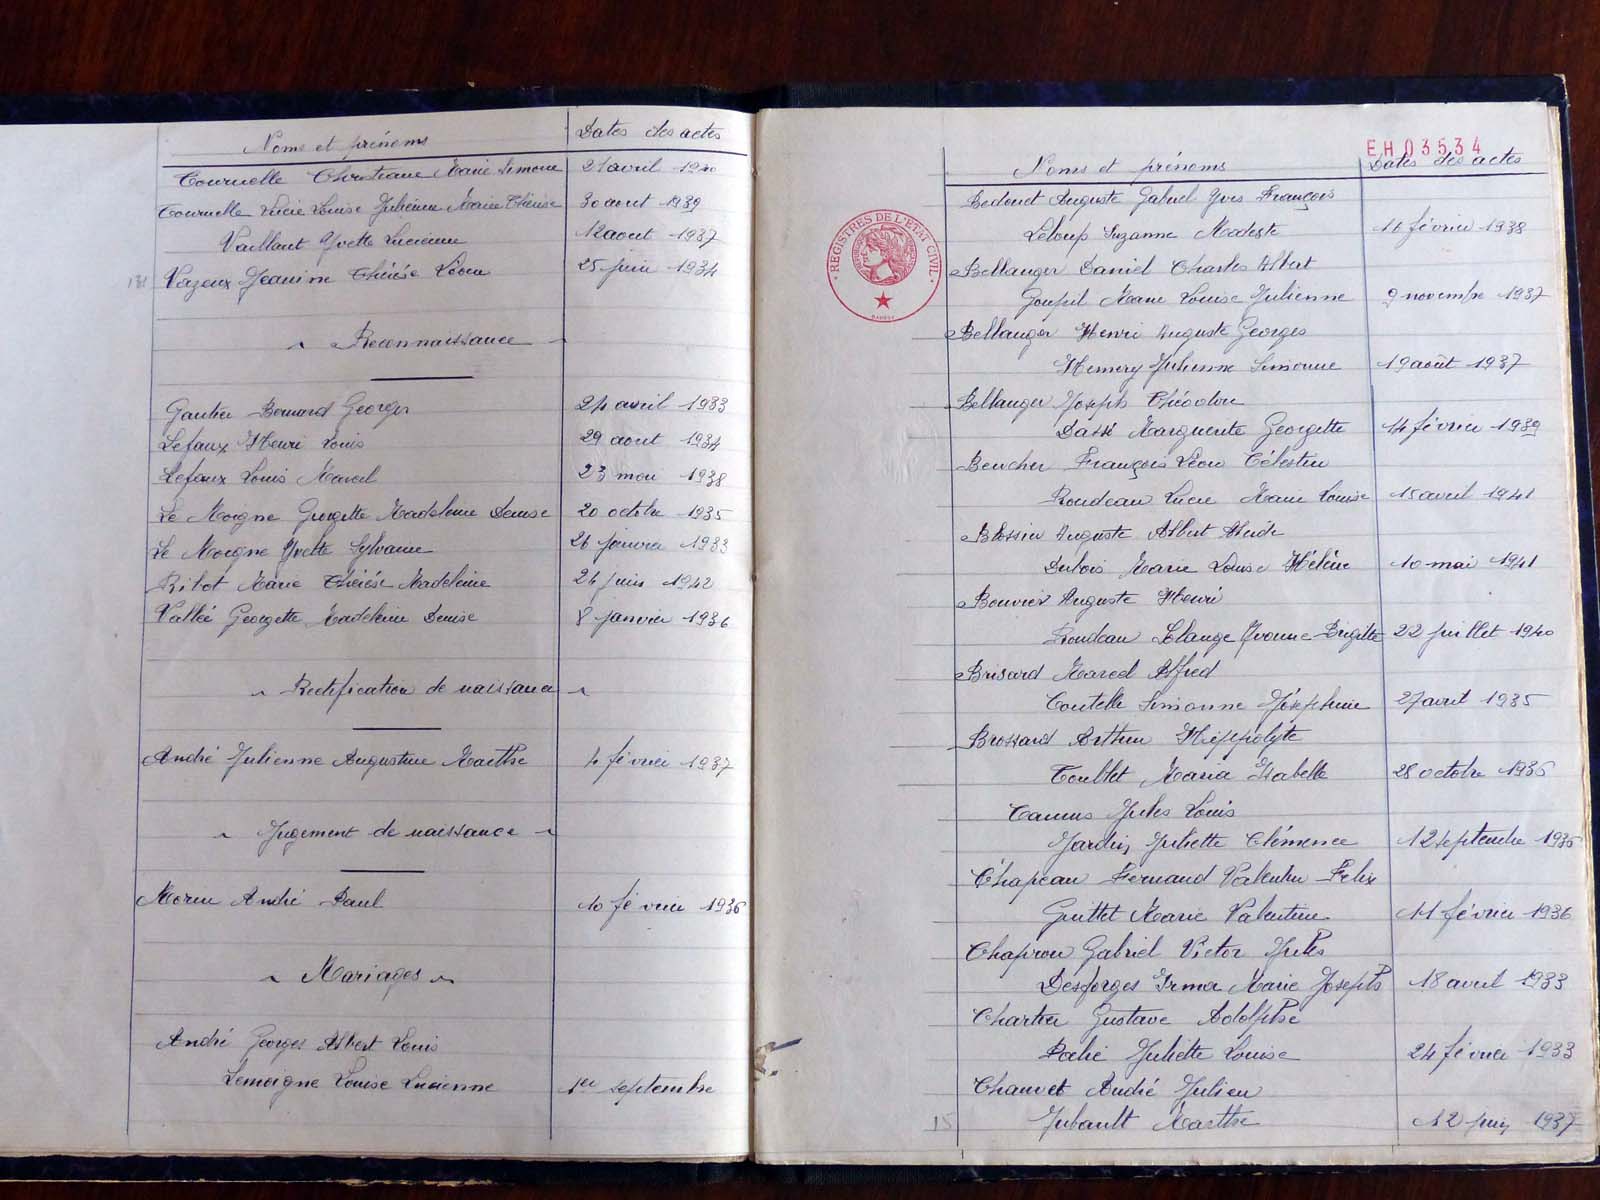 Noms et prénoms Dates des actes
Tournelle Christiane Marie Simone 21 avril 1940
Tournelle Lucie Louise Julienne Marie Thérèse 30 aout 1939
Vaillant Yvette Lucienne 12 aout 1937
131 Vazeux Jeanine Thérèse Léone 25 juin 1934
Reconnaissance
Gautier Bernard Georges 24 avril 1933
Lefaux Henri Louis 29 aout 1934
Lefaux Louis Marcel 23 mai 1938
Le Moigne Georgette Madeleine Denise 20 octobre 1935
Le Moigne Yvette Sylvaine 26 janvier 1933
Ribot Marie Thérèse Madeleine 26 juin 1942
Vallée Georgette Madeleine Denise 8 janvier 1936
Rectification de naissance
André Julienne Augustine Marthe 4 février 1937
Jugement de naissance
Morin André Paul 10 février 1936
Mariages
André Georges Albert Louis
Lemoigne Louise Lucienne 1er septembre
EH03534
Noms et prénoms Dates des actes
REGISTRES DE L'ETAT CIVIL
Bedouet Auguste Gabriel Yves François
Leloup Suzanne Modeste 16 février 1938
Bellanger Daniel Charles Albert
Goupil Marie Louise Julienne 9 novembre 1937
Bellanger Henri Auguste Georges
Hemery Julienne Simonne 19 août 1937
Bellanger Joseph Théodore
Dassé Marguerite Georgette 14 février 1939
Beucher François Léon Célestin
Rondeau Lucie Marie Louise 15 avril 1941
Blossier Auguste Albert
Dubois Marie Louise Hélène 10 mai 1941
Bouvier Auguste Henri
Rondeau Yvonne Brigitte 22 juillet 1940
Brisard Marcel Alfred
Coutelle Simonne Joséphine 27 avril 1935
Brossard Arthur Hippolyte
Toublet Maria Isabelle 28 octobre 1936
Camus Jules Louis
Jardin Juliette Clémence 12 septembre 1936
Chapeau Fernand Valentin Felix
Guittet Marie Valentine 11 février 1936
Chapron Gabriel Victor Jules
Desforges Irma Marie Joseph 18 avril 1933
Chartier Gustave Adolphe
Juliette Louise 24 février 1933
Chauvet André Julien
15 Jubault Marthe 12 juin 1937